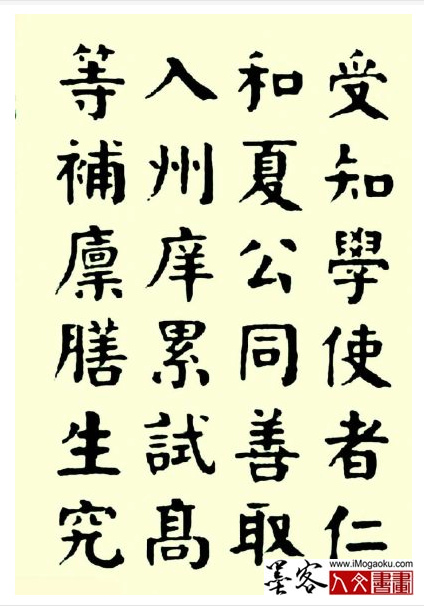 受知學使者仁
和夏公同善取
入州庠累試高
等補廩膳生究
www.iMogaoku.com
墨客
人文書畫